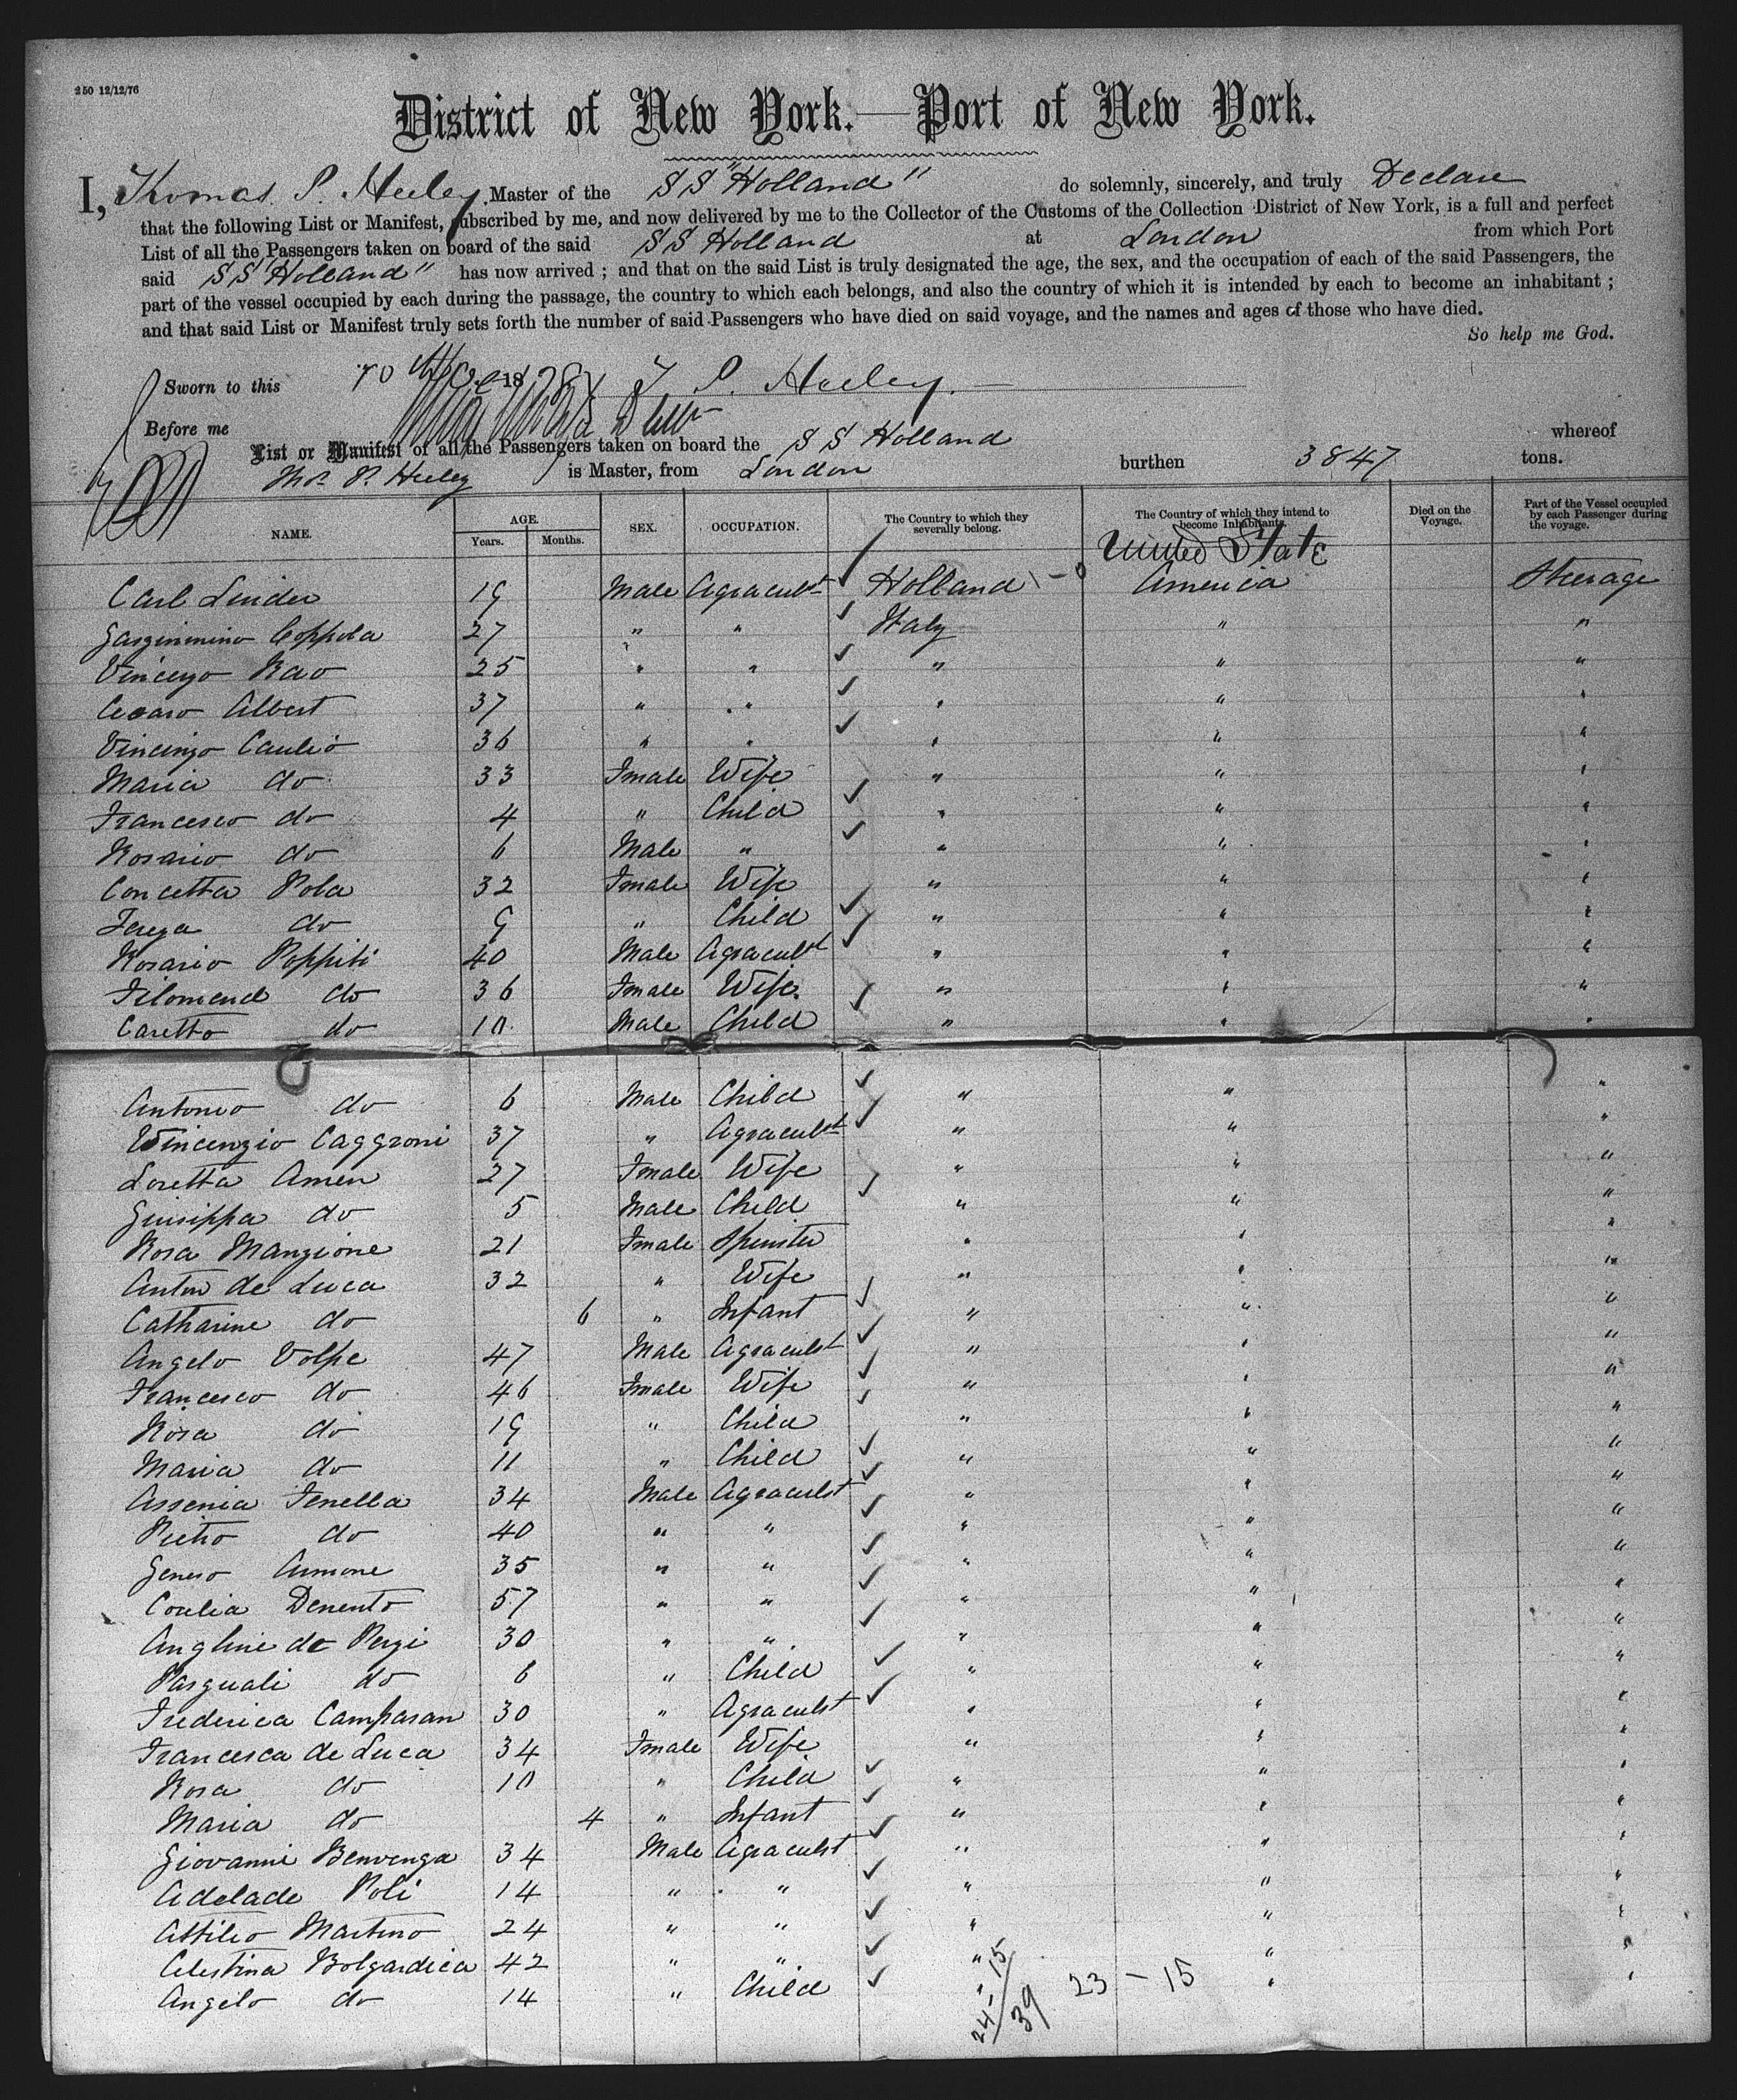 250 12/12/76
District of New York.—Port of New York.
I, Thomas P. Heeley, Master of the SS "Holland" do solemnly, sincerely, and truly Declare
that the following List or Manifest, subscribed by me, and now delivered by me to the Collector of the Customs of the Collection District of New York, is a full and perfect
List of all the Passengers taken on board of the said SS Holland at London from which Port
said SS "Holland" has now arrived; and that on the said List is truly designated the age, the sex, and the occupation of each of the said Passengers, the
part of the vessel occupied by each during the passage, the country to which each belongs, and also the country of which it is intended by each to become an inhabitant;
and that said List or Manifest truly sets forth the number of said Passengers who have died on said voyage, and the names and ages of those who have died.
So help me God.
Sworn to this 18 T P. Heeley.
Before me
List or Manifest of all the Passengers taken on board the SS Holland whereof
Thos. P. Heeley is Master, from London burthen 3847 tons.
NAME. AGE. Years. Months. SEX. OCCUPATION. The Country to which they severally belong. The Country of which they intend to become Inhabitants. Died on the Voyage. Part of the Vessel occupied by each Passenger during the voyage.
United State
Carl Linder 19 Male Agracult Holland 1-0 America Steerage
Coppola 27 " " Italy " "
Vincenzo Rao 25 " " " " "
Cesaro Albert 37 " " " " "
Vincinzo Caulio 36 " " " " "
Maria do 33 Fmale Wife " " "
Francesco do 4 " Child " " "
Rosario do 6 Male " " " "
Concetta Pola 32 Fmale Wife " " "
Tereza do 9 " Child " " "
Rosario Poppiti 40 Male Agracult " " "
Filomend do 36 Fmale Wife " " "
Caretto do 10 Male Child " " "
Antonio do 6 Male Child " " "
Wincenzio Caggzoni 37 " Agracult " " "
Loretta Amen 27 Fmale Wife " " "
Giusippa do 5 Male Child " " "
Rosa Mangione 21 Fmale Spinster " " "
Anton de Luca 32 " Wife " " "
Catharine do 6 " Infant " " "
Angelo Volpe 47 Male Agracult " " "
Francesco do 46 Fmale Wife " " "
Rosa do 19 " Child " " "
Maria do 11 " Child " " "
Assenia Fenella 34 Male Agracult " " "
Pietro do 40 " " " " "
Genero Aimone 35 " " " " "
Coulia Denento 57 " " " " "
Angline de Pergi 30 " " " " "
Pasquali do 6 " Child " " "
Frederica Camparan 30 " Agracult " " "
Francesca de Luca 34 Fmale Wife " " "
Rosa do 10 " Child " " "
Maria do 4 " Infant " " "
Giovanni Benvenga 34 Male Agracult " " "
Adelade Poli 14 " " " " "
Attilio Martino 24 " " " " "
Celestina Bolgardica 42 " " " " "
Angelo do 14 " Child " " "
24-15
39
23 - 15